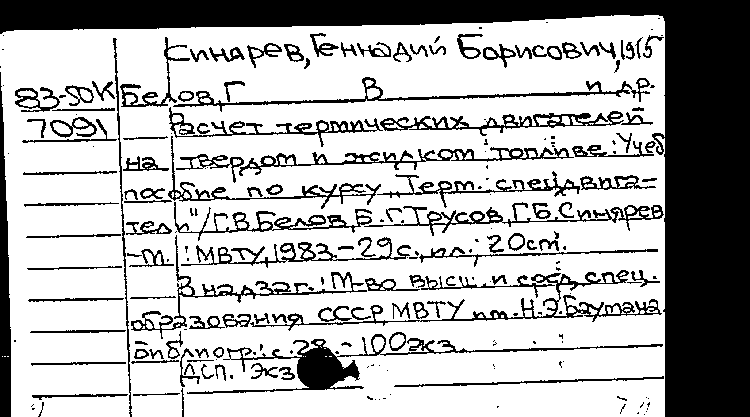 Синярев, Геннадий Борисович, 1915
83-50К Белов, Г В и др.
7091 Расчет термических двигателей
на твердом и жидком топливе: Учеб
пособие по курсу „Терм. спецдвига-
тели"/Г.В.Белов, Б.Г.Трусов, Г.Б.Синярев
-М. : МВТУ, 1983.-29с., ил.; 20см.
В надзаг.: М-во высш. и сред. спец.
образования СССР, МВТУ им. Н.Э.Баумана.
Библиогр.: с. 28. - 100экз.
ДСП. Экз